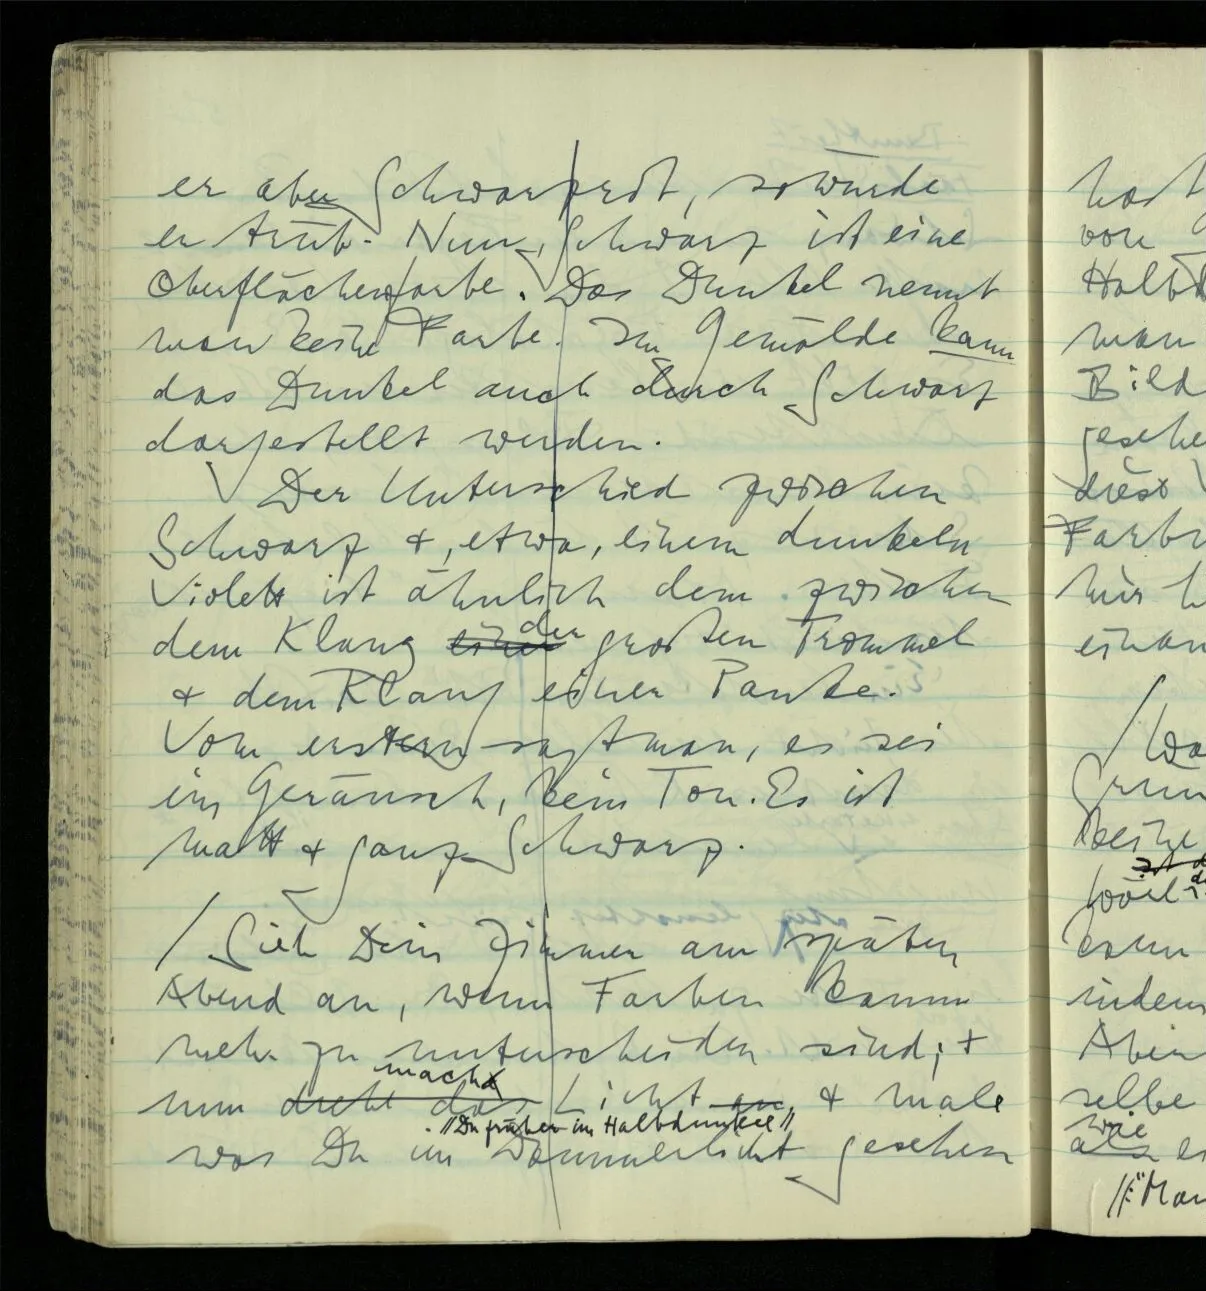 er aber Schwarzrot, so würde
er trüb. Nun, Schwarz ist eine
Oberflächenfarbe. Das Dunkel nennt
man keine Farbe. Im Gemälde kann
das Dunkel auch durch Schwarz
dargestellt werden.
Der Unterschied zwischen
Schwarz &, etwa, einem dunkeln
Violett ist ähnlich dem zwischen
der
dem Klang einer großen Trommel
& dem Klang einer Pauke.
Vom erstern sagt man, es sei
ein Geräusch, kein Ton. Es ist
matt & ganz Schwarz.
/ Sieh Dein Zimmer am späten
Abend an, wenn Farben kaum
mehr zu unterscheiden sind; &
mach
nun dreht das Licht an, & male
"Du früher im Halbdunkel"
was Du im Dämmerlicht gesehen
hast
von
man
Bild
gesehe
Farbe
/ Wa
Grün
keine
weil
kann
indem
selbe
wie
als